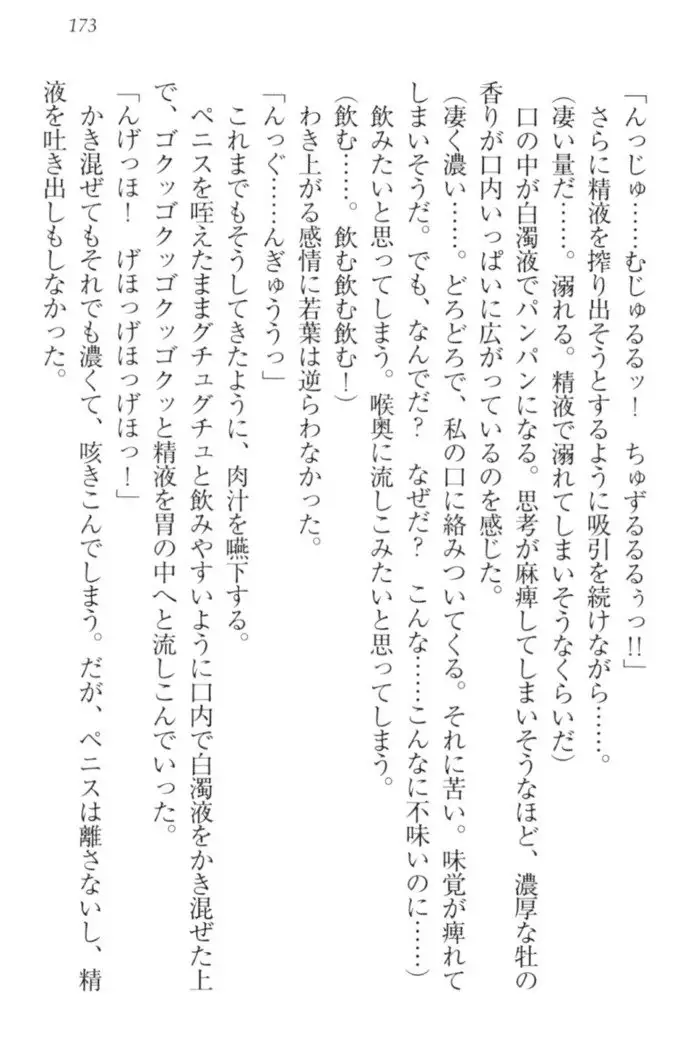 173
「んっじゅ……むじゅるるッ！　ちゅずるるるぅっ!!」
　さらに精液を搾り出そうとするように吸引を続けながら……。
（凄い量だ……。溺れる。精液で溺れてしまいそうなくらいだ）
　口の中が白濁液でパンパンになる。思考が麻痺してしまいそうなほど、濃厚な牡の
香りが口内いっぱいに広がっているのを感じた。
（凄く濃い……。どろどろで、私の口に絡みついてくる。それに苦い。味覚が痺れて
しまいそうだ。でも、なんでだ？　なぜだ？　こんな……こんなに不味いのに……）
　飲みたいと思ってしまう。喉奥に流しこみたいと思ってしまう。
（飲む……。飲む飲む飲む！）
　わき上がる感情に若葉は逆らわなかった。
「んっぐ……んぎゅううっ」
　これまでもそうしてきたように、肉汁を嚥下する。
　ペニスを咥えたままグチュグチュと飲みやすいように口内で白濁液をかき混ぜた上
で、ゴクッゴクッゴクッと精液を胃の中へと流しこんでいった。
「んげっほ！　げほっげほっげほっ！」
　かき混ぜてもそれでも濃くて、咳きこんでしまう。だが、ペニスは離さないし、精
液を吐き出しもしなかった。